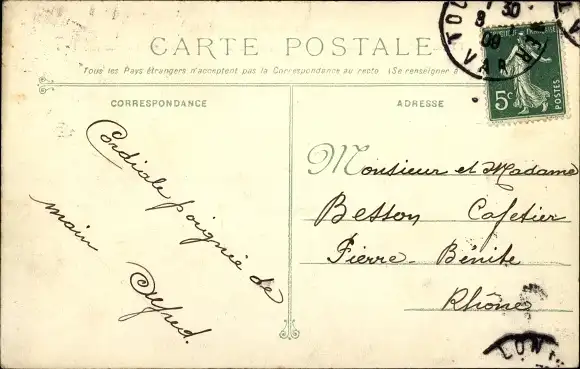 CARTE POSTALE
Tous les Pays étrangers n'acceptent pas la Correspondance au recto (Se renseigner à
CORRESPONDANCE
ADRESSE
Cordiale poignée de
main Alfred.
Monsieur et Madame
Besson Cafetier
Pierre-Bénite
Rhône
5c
POSTES
30
8
09
VAR